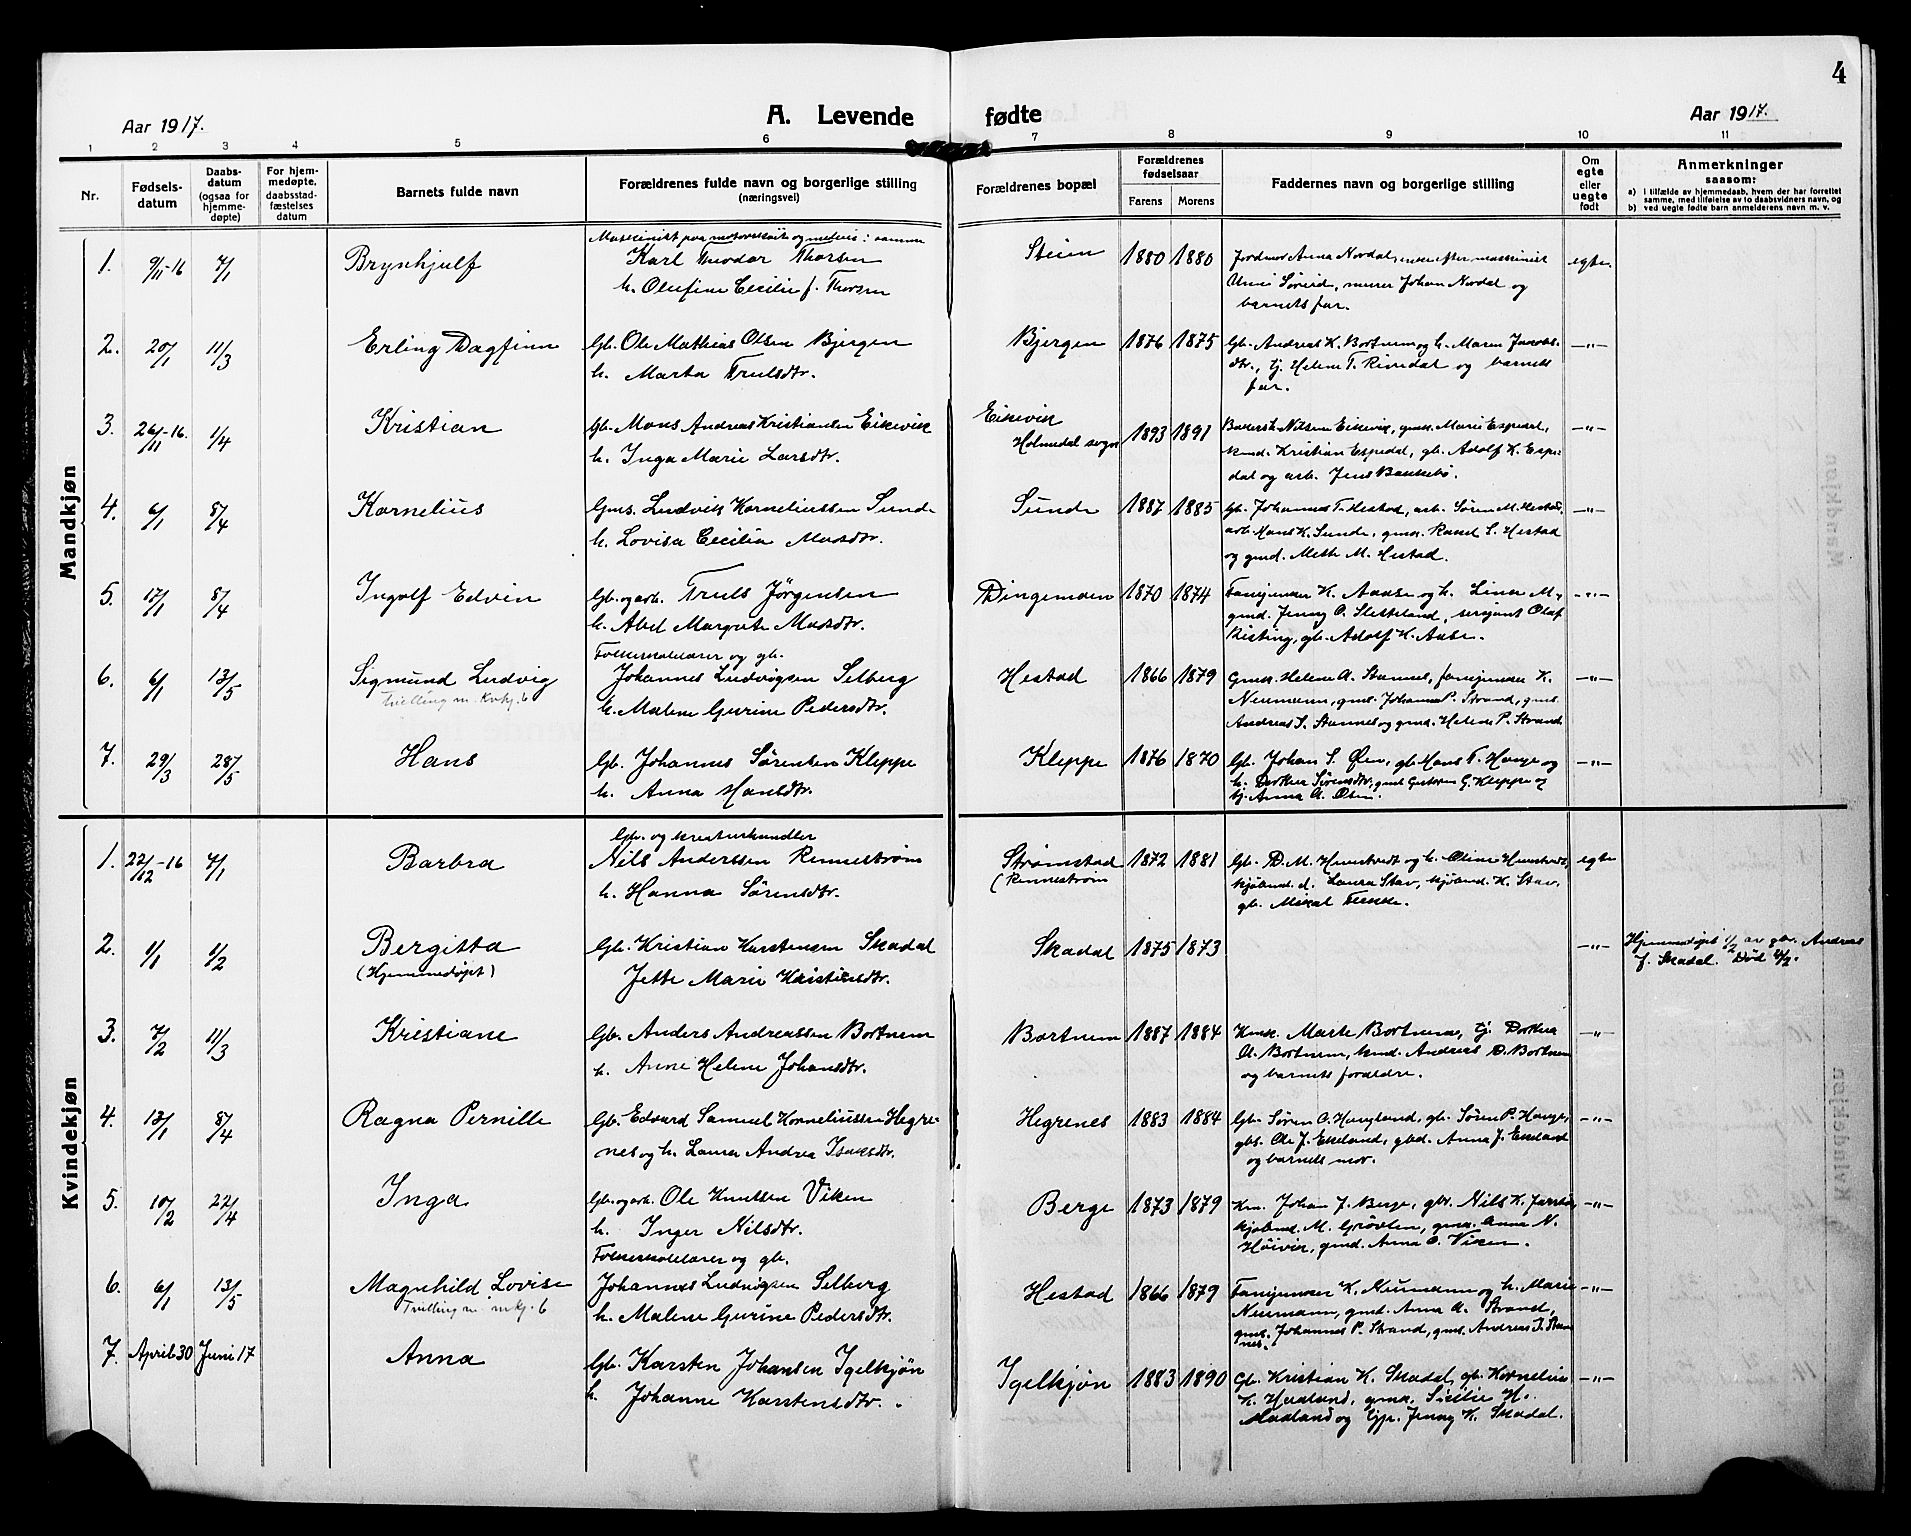 4
Aar 1917.
A. Levende fødte
Aar 1917.
1 2 3 4 5 6 7 8 9 10 11
Nr.
Fødsels-
datum
Daabs-
datum
(ogsaa for
hjemme-
døpte)
For hjem-
medøpte,
daabsstad-
fæstelses
datum
Barnets fulde navn
Forældrenes fulde navn og borgerlige stilling
(næringsvei)
Forældrenes bopæl
Forældrenes
fødselsaar
Farens Morens
Faddernes navn og borgerlige stilling
Om
egte
eller
uegte
født
Anmerkninger
saasom:
a) I tilfælde av hjemmedaab, hvem der har forrettet
samme, med tilføielse av to daabsvidners navn, og
b) ved uegte fødte barn anmelderens navn m. v.
Mandkjøn
1. 9/11-16 7/1 Brynhjulf
Karl Theodor Thorsen
h. Olufine Cecilie f. Thorsen
Steien 1880 1880
Jordmor Anna Nordal, enke efter maskinist
Unni Søreid, murer Johan Nordal og
barnets far.
egte
2. 20/1 11/3 Erling Dagfinn
Gb. Ole Mathias Olsen Bjergen
h. Marta Trulsdtr.
Bjergen 1876 1875
Gb. Andreas K. Bortnem og h. Maren Jacobs-
dtr., tj. Helene T. Rivedal og barnets
far.
—"—
3. 26/11-16. 1/4 Kristian
Gb. Mons Andreas Kristiansen Eikevik
h. Inga Marie Larsdtr.
Eikevik
Holmedal sogn 1893 1891
Nilsen Eikevik, gmk. Marie Espedal,
kmd. Kristian Espedal, gb. Adolf K. Espe-
dal og arb. Jens
—"—
4. 6/1 8/4 Kornelius
Gms. Ludvik Korneliussen Sunde
h. Lovisa Cecilia Madsdtr.
Sunde 1887 1885
Gb. Johannes T. Hestad, arb. Søren M. Hestad,
arb. Hans K. Sunde, gmk. Ragnl S. Hestad
og gmd. Meth M. Hestad.
—"—
5. 17/1 8/4 Ingolf Edvin
Gb. og arb. Truls Jørgensen
h. Abel Margrete Madsdtr.
Dingemoen 1870 1874
Fanejunker K. Aasse og h. Lina M.,
gmd. Jenny O. Sletteland, sersjant Olaf
Kisting, gb. Adolf K. Aase.
—"—
6. 6/1 13/5 Sigmund Ludvig
Tvilling m. kvkj. 6
Folkeskolelærer og gb.
Johannes Ludvigsen Selberg
h. Malene Gurine Pedersdtr.
Hestad 1866 1879
Gmk. Helene A. Stamnes, fanejunker K.
Neumann, gms. Johannes P. Strand, gms.
Andreas S. Stamnes og gmd. Helene P. Strand
—"—
7. 29/3 28/5 Hans
Gb. Johannes Sørensen Kleppe
h. Anna Hansdtr.
Kleppe 1876 1870
Gb. Johan S. Øen, gb. Hans T. Hauge og
h. Dorthea Sørensdtr., gms. Gustav G. Kleppe og
tj. Anna A. Øen.
—"—
Kvindekjøn
1. 22/12-16 7/1 Barbra
Gb. og kreaturhandler
Nils Anderssen Rennestrøm
h. Hanna Sørensdtr.
Strømstad
(Rennestrøm 1872 1881
Gb. D. M. Hunstvedt og h. Oline Hunstvedt,
kjøbmd. d. Laura Stav, kjøbmd. K. Stav,
gb. Mikal
egte
2. 1/1 1/2 Bergitta
(Hjemmedøpt)
Gb. Kristian Karstensen Skadal
Jette Marie Kristiensdtr.
Skadal 1875 1873
—"—
Hjemmedøpt 1/2 av gbr. Andreas
J. Skadal. Død 4/2.
3. 7/2 11/3 Kristiane
Gb. Anders Andreassen Bortnem
h. Anne Helene Johansdtr.
Bortnem 1887 1884
Kmk. Marte Bortnem, tj. Dorthea
A. Bortnem, kmd. Andreas D. Bortnem
og barnets forældre.
—"—
4. 13/1 8/4 Ragna Pernille
Gb. Edvard Samuel Korneliussen Hegre-
nes og h. Laura Andrea Isaksdtr.
Hegrenes 1883 1884
Gb. Søren A. Haugland, gb. Søren P. Hauge,
gbs. Ole J. Eikeland, gbd. Anna J. Eikeland
og barnets mor.
—"—
5. 10/2 22/4 Inga
Gb. og arb. Ole Knutsen Viken
h. Inger Nilsdtr.
Berge 1873 1879
Km. Johan J. Berge, gbr. Nils K.
kjøbmd. M. Grøvlen, gmk. Anna N.
Høivik, gmd. Anna O. Viken.
—"—
6. 6/1 13/5 Magnhild Lovise
Tvilling m. mkj. 6
Folkeskolelærer og gb.
Johannes Ludvigsen Selberg
h. Malene Gurine Pedersdtr.
Hestad 1866 1879
Fanejunker K. Neumann og h. Marie
Neumann, gmd. Anna A. Strand,
gms. Johannes P. Strand, gms. Andreas S. Stam-
nes.
—"—
7. April 30 Juni 17 Anna
Gb. Karsten Johansen Igelkjøn
h. Johanne Karstensdtr.
Igelkjøn 1883 1890
Gb. Kristian K. Skadal, gb. Kornelius
K. Haaland, gmk. Sicilie H.
Haaland og tjp. Jenny K. Skadal.
—"—